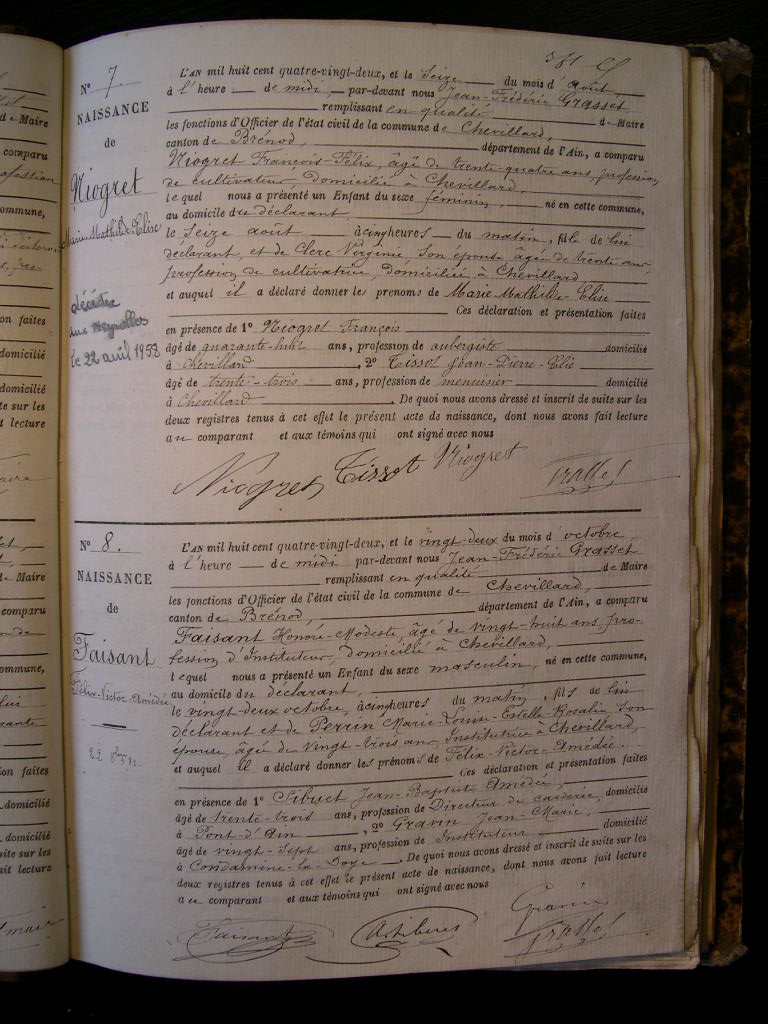 N° 7
NAISSANCE
de
Niogret
Marie-Mathilde-Elise
décédée
aux Neyrolles
le 22 avril 1958
L'AN mil huit cent quatre-vingt-deux, et le Seize du mois d'août,
à l'heure de midi, par-devant nous Jean-Frédéric Grasset
remplissant en qualité de Maire
les fonctions d'Officier de l'état civil de la commune de Chevillard,
canton de Brénod, département de l'Ain, a comparu
Niogret François-Félix, âgé de trente-quatre ans, profession
de cultivateur, domicilié à Chevillard,
lequel nous a présenté un Enfant du sexe féminin, né en cette commune,
au domicile du déclarant,
le Seize août à cinq heures du matin, fille de lui
déclarant, et de Clerc Virginie, Son épouse, âgée de trente ans,
profession de cultivatrice, domiciliée à Chevillard
et auquel il a déclaré donner les prénoms de Marie-Mathilde-Elise
Ces déclaration et présentation faites
en présence de 1° Niogret François
âgé de quarante-huit ans, profession de aubergiste domicilié
à Chevillard, 2° Tissot Jean-Pierre-Elie
âgé de trente-trois ans, profession de menuisier domicilié
à Chevillard. De quoi nous avons dressé et inscrit de suite sur les
deux registres tenus à cet effet le présent acte de naissance, dont nous avons fait lecture
au comparant et aux témoins qui ont signé avec nous
Niogret Tissot Niogret
N° 8.
NAISSANCE
de
Faisant
Félix-Victor-Amédée
L'AN mil huit cent quatre-vingt-deux, et le vingt-deux du mois d'octobre,
à l'heure de midi par-devant nous Jean-Frédéric Grasset
remplissant en qualité de Maire
les fonctions d'Officier de l'état civil de la commune de Chevillard,
canton de Brénod, département de l'Ain, a comparu
Faisant Honoré-Modeste, âgé de vingt-huit ans pro-
fession d'Instituteur, domicilié à Chevillard,
lequel nous a présenté un Enfant du sexe masculin, né en cette commune,
au domicile du déclarant,
le vingt-deux octobre, à cinq heures du matin, fils de lui
déclarant et de Perrin Marie-Louise-Estelle-Rosalie Son
épouse, âgée de vingt-trois ans Institutrice à Chevillard,
et auquel il a déclaré donner les prénoms de Félix-Victor-Amédée.
Ces déclaration et présentation faites
en présence de 1° Sibuet Jean-Baptiste Amédée,
âgé de trente-trois ans, profession de Directeur de carderie, domicilié
à Pont-d'Ain, 2° Gravin Jean-Marie,
âgé de vingt-Sept ans, profession de Instituteur domicilié
à Condamine-la-Doye. De quoi nous avons dressé et inscrit de suite sur les
deux registres tenus à cet effet le présent acte de naissance, dont nous avons fait lecture
au comparant et aux témoins qui ont signé avec nous
Gravin
Faisant